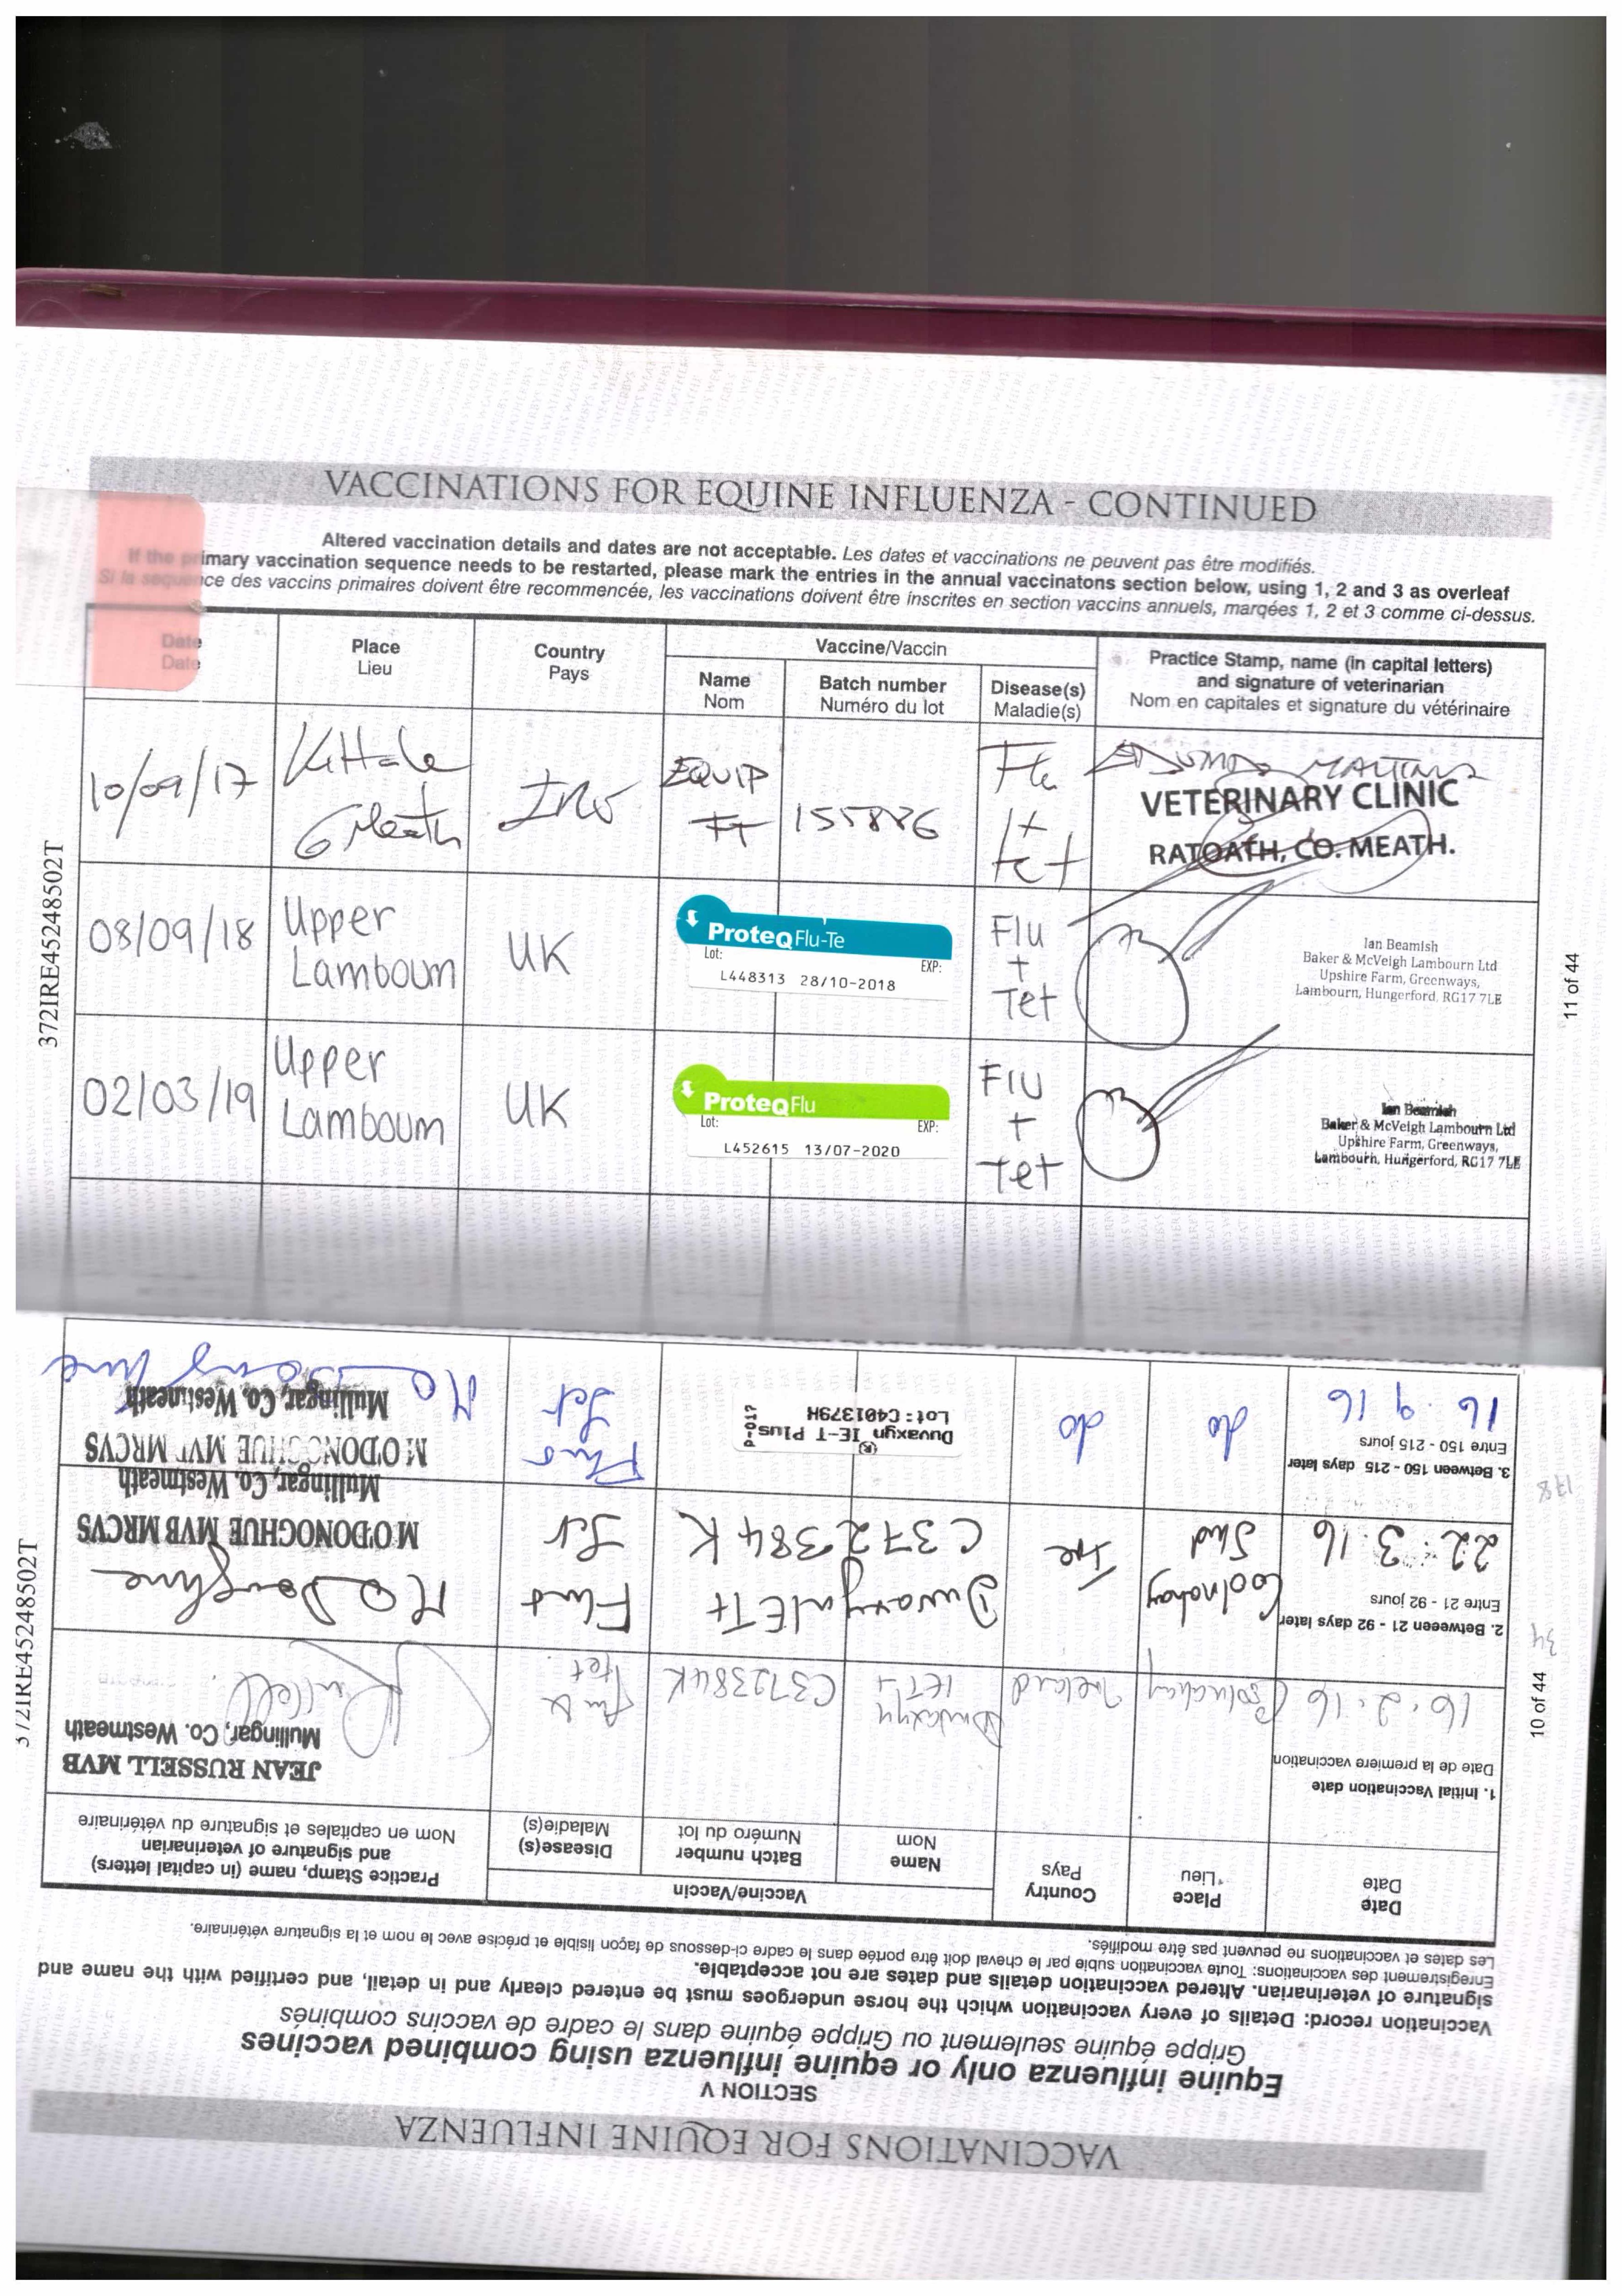 VACCINATIONS FOR EQUINE INFLUENZA - CONTINUED
Altered vaccination details and dates are not acceptable. Les dates et vaccinations ne peuvent pas être modifiés.
If the primary vaccination sequence needs to be restarted, please mark the entries in the annual vaccinatons section below, using 1, 2 and 3 as overleaf
Si la sequence des vaccins primaires doivent être recommencée, les vaccinations doivent être inscrites en section vaccins annuels, marqées 1, 2 et 3 comme ci-dessus.
Date
Date
Place
Lieu
Country
Pays
Vaccine/Vaccin
Name
Nom
Batch number
Numéro du lot
Disease(s)
Maladie(s)
Practice Stamp, name (in capital letters)
and signature of veterinarian
Nom en capitales et signature du vétérinaire
10/09/17
Meath
EQUIP
FT
Flu
+
tet
VETERINARY CLINIC
RATOATH, CO. MEATH.
08/09/18
Upper
Lambourn
UK
ProteqFlu-Te
Lot:
EXP:
L448313 28/10-2018
Flu
+
Tet
Ian Beamish
Baker & McVeigh Lambourn Ltd
Upshire Farm, Greenways,
Lambourn, Hungerford, RG17 7LE
02/03/19
Upper
Lambourn
UK
ProteqFlu
Lot:
EXP:
L452615 13/07-2020
Flu
+
Tet
Ian Beamish
Baker & McVeigh Lambourn Ltd
Upshire Farm, Greenways,
Lambourn, Hungerford, RG17 7LE
372IRE45248502T
11 of 44
VACCINATIONS FOR EQUINE INFLUENZA
SECTION V
Equine influenza only or equine influenza using combined vaccines
Grippe équine seulement ou Grippe équine dans le cadre de vaccins combinés
Vaccination record: Details of every vaccination which the horse undergoes must be entered clearly and in detail, and certified with the name and
signature of veterinarian. Altered vaccination details and dates are not acceptable.
Enregistrement des vaccinations: Toute vaccination subie par le cheval doit être portée dans le cadre ci-dessous de façon lisible et précise avec le nom et la signature vétérinaire.
Les dates et vaccinations ne peuvent pas être modifiés.
Date
Date
Place
Lieu
Country
Pays
Vaccine/Vaccin
Name
Nom
Batch number
Numéro du lot
Disease(s)
Maladie(s)
Practice Stamp, name (in capital letters)
and signature of veterinarian
Nom en capitales et signature du vétérinaire
1. Initial Vaccination date
Date de la premiere vaccination
16.2.16
Ireland
IET+
C372384K
Flu &
tet
JEAN RUSSELL MVB
Mullingar, Co. Westmeath
2. Betweeen 21 - 92 days later
Entre 21 - 92 jours
22.3.16
Coolnahay
Stud
Ire
Duvaxyn IET+
C372384K
M O'DONOGHUE MVB MRCVS
Mullingar, Co. Westmeath
3. Between 150 - 215 days later
Entre 150 - 215 jours
16.9.16
do
do
Duvaxyn IE-T Plus
Lot: C401379H
M O'DONOGHUE MVB MRCVS
Mullingar, Co. Westmeath
34
178
372IRE45248502T
10 of 44